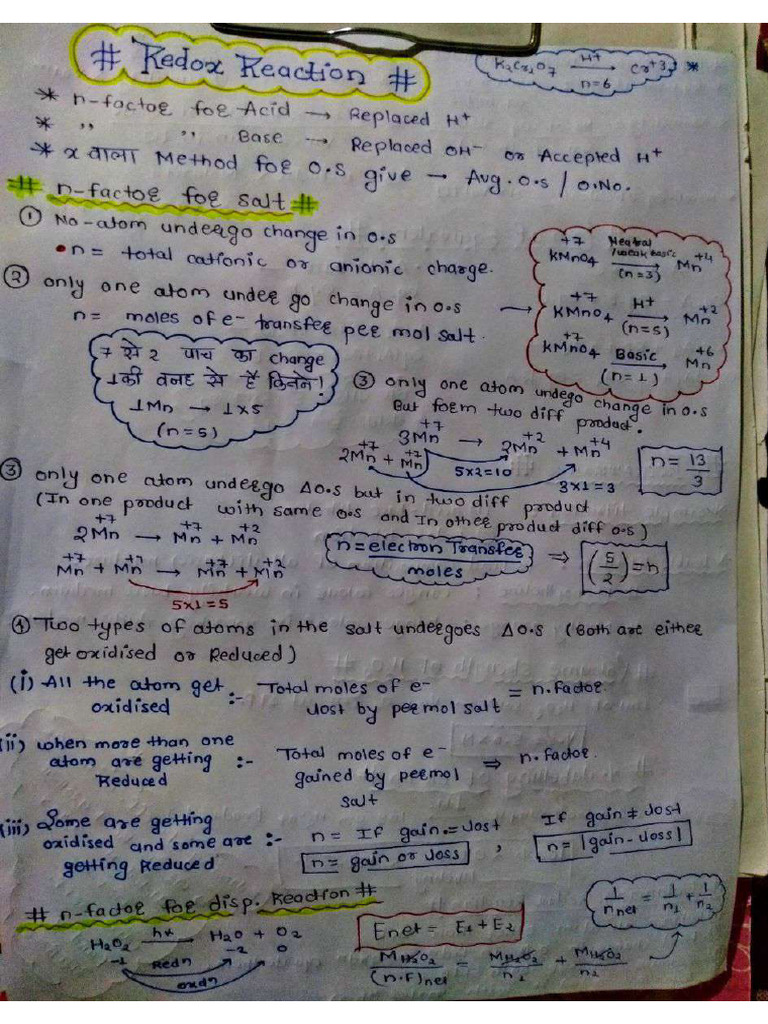 # Redox Reaction #
K2Cr2O7 H+ → n=6 Cr+3 *
* n-factor for Acid → Replaced H+
* " " Base → Replaced OH- or Accepted H+
* x वाला Method for O.S give → Avg. O.S / O.No.
# n-factor for salt #
① No-atom undergo change in O.S
• n = total cationic or anionic charge.
② only one atom under go change in O.S →
n = moles of e- transfer per mol salt.
+7 KMnO4 Neutral /weak basic → (n=3) Mn +4
+7 KMnO4 H+ → (n=5) Mn +2
+7 KMnO4 Basic → (n=1) Mn +6
7 से 2 पाच का change
1 की वजह से है कितने!
1Mn → 1x5
(n=5)
③ only one atom undego change in O.S
But form two diff product.
+7 3Mn → +2 2Mn + +4 Mn
+7 2Mn + +7 Mn
5x2=10 3x1=3
n = 13/3
③ only one atom undergo ΔO.S but in two diff product
(In one product with same O.S and In other product diff O.S)
+7 2Mn → +7 Mn + +2 Mn
+7 Mn + +7 Mn → +7 Mn + +2 Mn
5x1=5
n = electron Transfer / moles ⇒ (5/2) = n
④ Two types of atoms in the salt undergoes ΔO.S (Both are either
get oxidised or Reduced)
(i) All the atom get oxidised :- Total moles of e- lost by per mol salt = n.factor
(ii) when more than one atom are getting Reduced :- Total moles of e- gained by permol salt ⇒ n.factor
(iii) Some are getting oxidised and some are getting Reduced :- n = If gain = lost
n = gain or loss ,
If gain ≠ lost
n = |gain - loss|
# n-factor for disp. Reaction #
H2O2 h+ → H2O + O2
-1 -2 0
Redn
oxdn
Enet = E1 + E2
1/nnet = 1/n1 + 1/n2
MH2O2/(n.F)net = MH2O2/n1 + MH2O2/n2